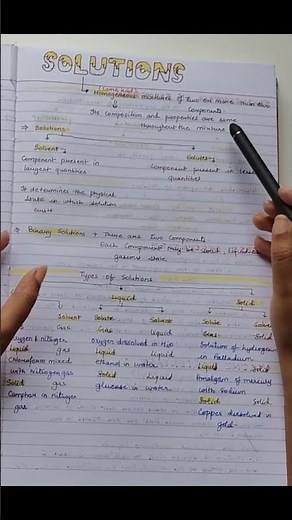 SOLUTIONS
Homogeneous mixtures of two or more than two
components.
The composition and properties are same
throughout the mixture
⇒ Solutions
Solvent
Solute
Component present in
largest quantities
Component present in lesser
quantities
It determines the physical
state in which solution
exists
⇒ Binary Solutions → There are Two Components
Each Component may be solid, liquid
gaseous state
Types of Solutions
Liquid
Solid
Solvent Solute Solvent Solute Solvent
Gas Gas Liquid Gas Solid
Oxygen & nitrogen Oxygen dissolved in H2O Solution of hydrogen
Liquid gas Liquid Liquid in Palladium
Chloroform mixed ethanol in water Liquid Solid
with nitrogen gas Solid Liquid Amalgam of mercury
Solid gas glucose in water with Sodium
Camphor in nitrogen Solid Solid
gas Copper dissolved in
gold